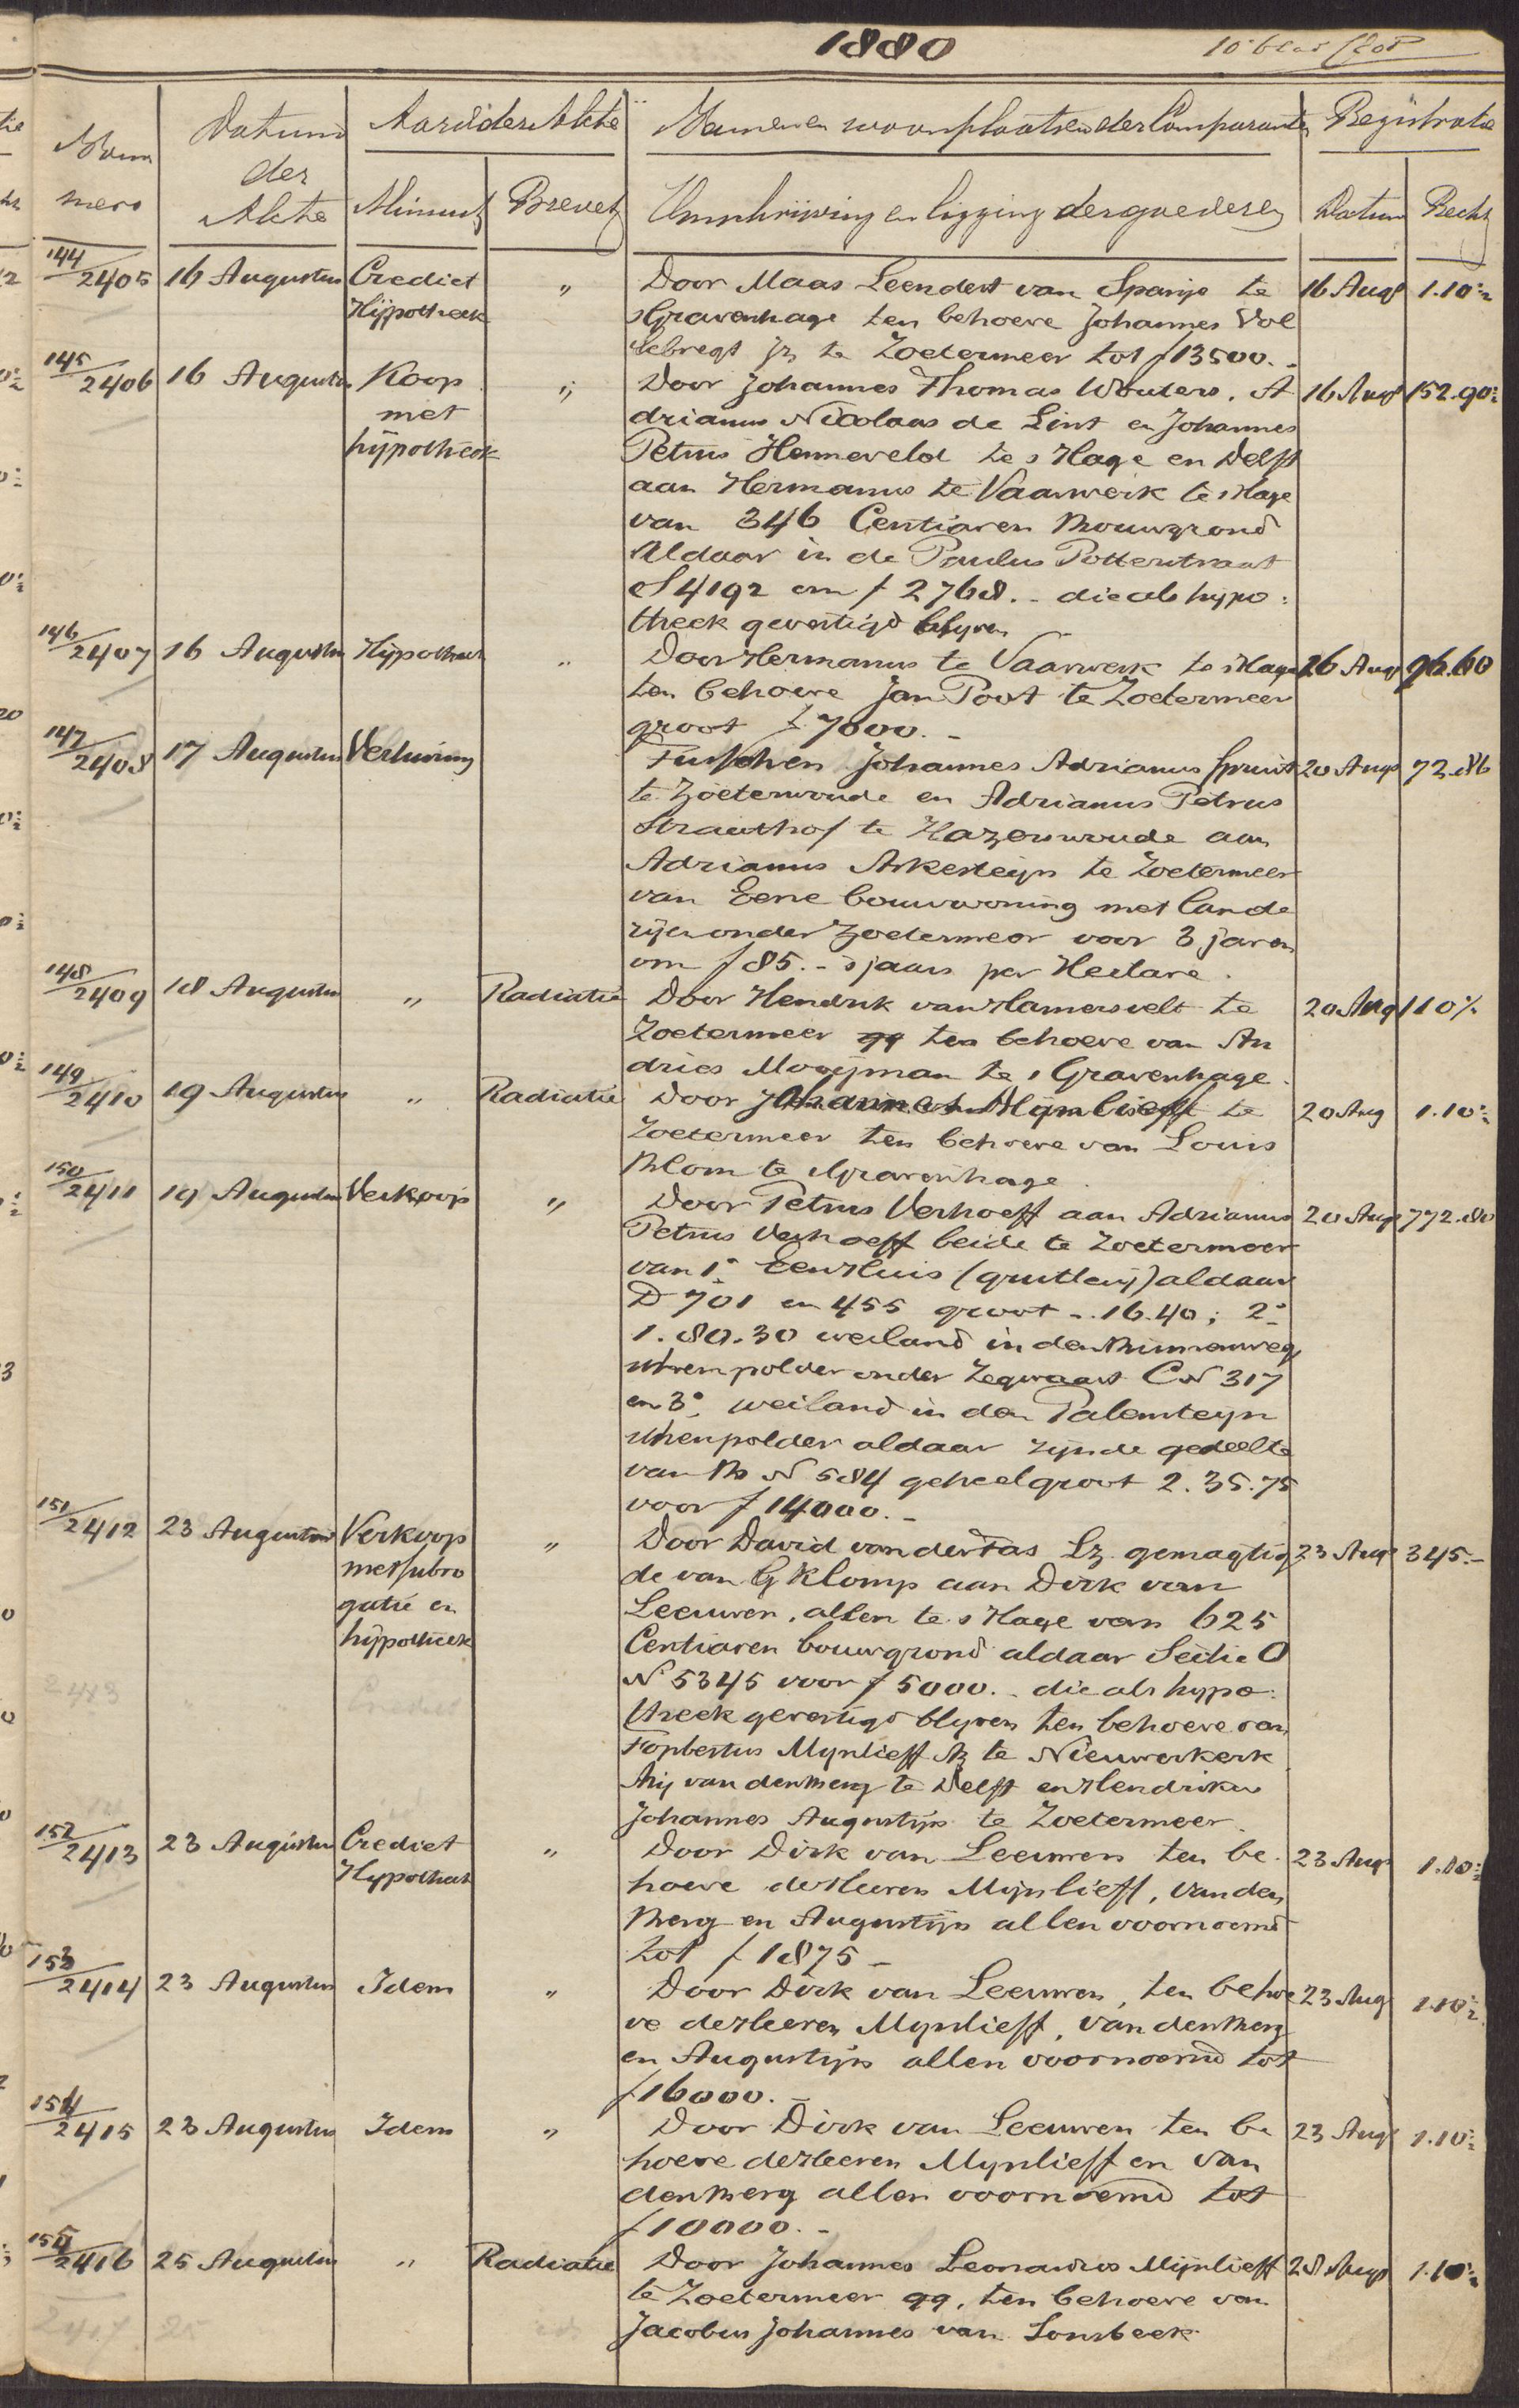 1880
10e blad
Nom
mero
Datum
der
Akte
Aard der Akte
Minuut
Brevet
Namen en woonplaatsen der Comparanten
Omschrijving en ligging der goederen
Registratie
Datum
Recht
144/2405 16 Augustus Crediet " Door Maas Leendert van Spanje te 16 Augs 1.10½
Hijpotheek sGravenhage ten behoeve Johannes Vol
lebregt Jz te Zoetermeer tot ƒ13500.-
145/2406 16 Augustus Koop " Door Johannes Thomas Wouters, A 16 Augs 152.90½
met drianus Nicolaas de Lint en Johannes
hijpotheek Petrus Henneveld te s Hage en Delft
aan Hermanus te Vaarwerk te sHage
van 346 Centiaren Bouwgrond
Aldaar in de Paulus Potterstraat
S 4192 om ƒ 2768.- die als hypo:
theek gevestigd blyven
146/2407 16 Augustus Hijpotheek " Door Hermanus te Vaarwerk te sHage 26 Aug 96.60
ten behoeve Jan Poot te Zoetermeer
groot ƒ 7000.-
147/2408 17 Augustus Verhuring Tusschen Johannes Adrianus Spruit 20 Augs 72.86
te Zoeterwoude en Adrianus Petrus
Straathof te Hazerswoude aan
Adrianus Arkesteijn te Zoetermeer
van Eene bouwwoning met lande
rijen onder Zoetermeer voor 3 jaren
om ƒ 85.- sjaars per Hectare.
148/2409 18 Augustus " Radiatie Door Hendrik van Hamersvelt te 20 Aug 110½
Zoetermeer qq ten behoeve van An
dries Mooijman te s Gravenhage.
149/2410 19 Augustus " Radiatie Door Johannes Mijnlieff te 20 Aug 1.10½
Zoetermeer ten behoeve van Louis
Blom te sGravenhage.
150/2411 19 Augustus Verkoop " Door Petrus Verhoeff aan Adrianus 20 Augs 772.80
Petrus Verhoeff beide te Zoetermeer
van 1e Een Huis (grutterij) aldaar
D 701 en 455 groot -.16.40; 2e
1.80.30 weiland in den Binnenweg
schen polder onder Zegwaart C N 317
en 3e weiland in den Palensteyn
schen polder aldaar zijnde gedeelte
van B N 584 geheel groot 2.35.75
voor ƒ 14000.-
151/2412 23 Augustus Verkoop " Door David van der Tas Lz. gemagtig 23 Augs 345.-
met subro de van G Klomp aan Dirk van
gatie en Leeuwen, allen te s Hage van 625
hijpotheek Centiaren bouwgrond aldaar Sectie O
N 5345 voor ƒ 5000.- die als hypo:
theek gevestigd blyven ten behoeve van
Fopbertus Mynlieff Az te Nieuwerkerk
Arij van den Berg te Delft en Hendrikus
Johannes Augustijn te Zoetermeer.
152/2413 23 Augustus Crediet " Door Dirk van Leeuwen ten be 23 Augs 1.10½
Hypotheek hoeve der Heeren Mijnlieff, van den
Berg en Augustijn allen voornoemd
tot ƒ 1875 -
153/2414 23 Augustus Idem " Door Dirk van Leeuwen, ten behoe 23 Aug 1.10½
ve der Heeren Mynlieff, van den Berg
en Augustijn allen voornoemd tot
ƒ16000.-
154/2415 23 Augustus Idem " Door Dirk van Leeuwen ten be 23 Augs 1.10½
hoeve der Heeren Mynlieff en van
den Berg allen voornoemd tot
ƒ10000.-
155/2416 25 Augustus " Radiatie Door Johannes Leonardus Mijnlieff 28 Augs 1.10½
te Zoetermeer qq, ten behoeve van
Jacobus Johannes van Lonsbeek